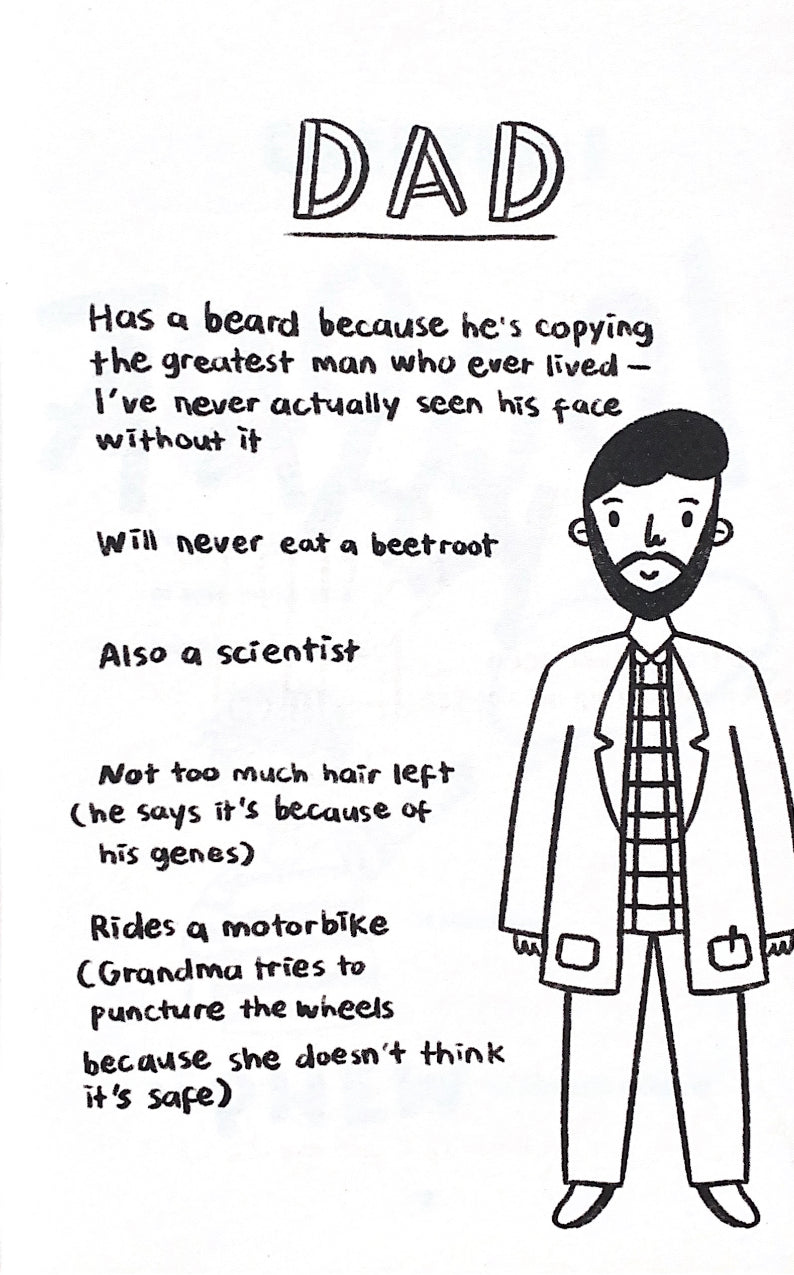 DAD
Has a beard because he's copying
the greatest man who ever lived –
I've never actually seen his face
without it
Will never eat a beetroot
Also a scientist
Not too much hair left
(he says it's because of
his genes)
Rides a motorbike
(Grandma tries to
puncture the wheels
because she doesn't think
it's safe)